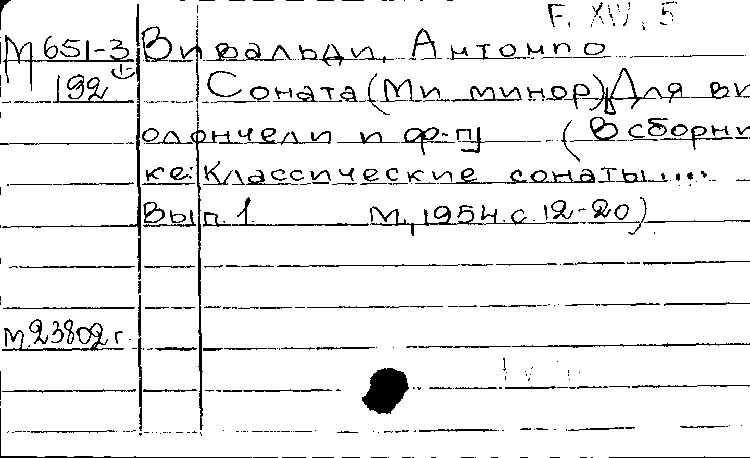 F. XIV, 5
М 651-3 Вивальди, Антонио
192 Соната (Ми минор) Для ви
олончели и ф-п (В сборни
ке: Классические сонаты....
Вып. 1 М., 1954. с. 12-20)
м23802г.